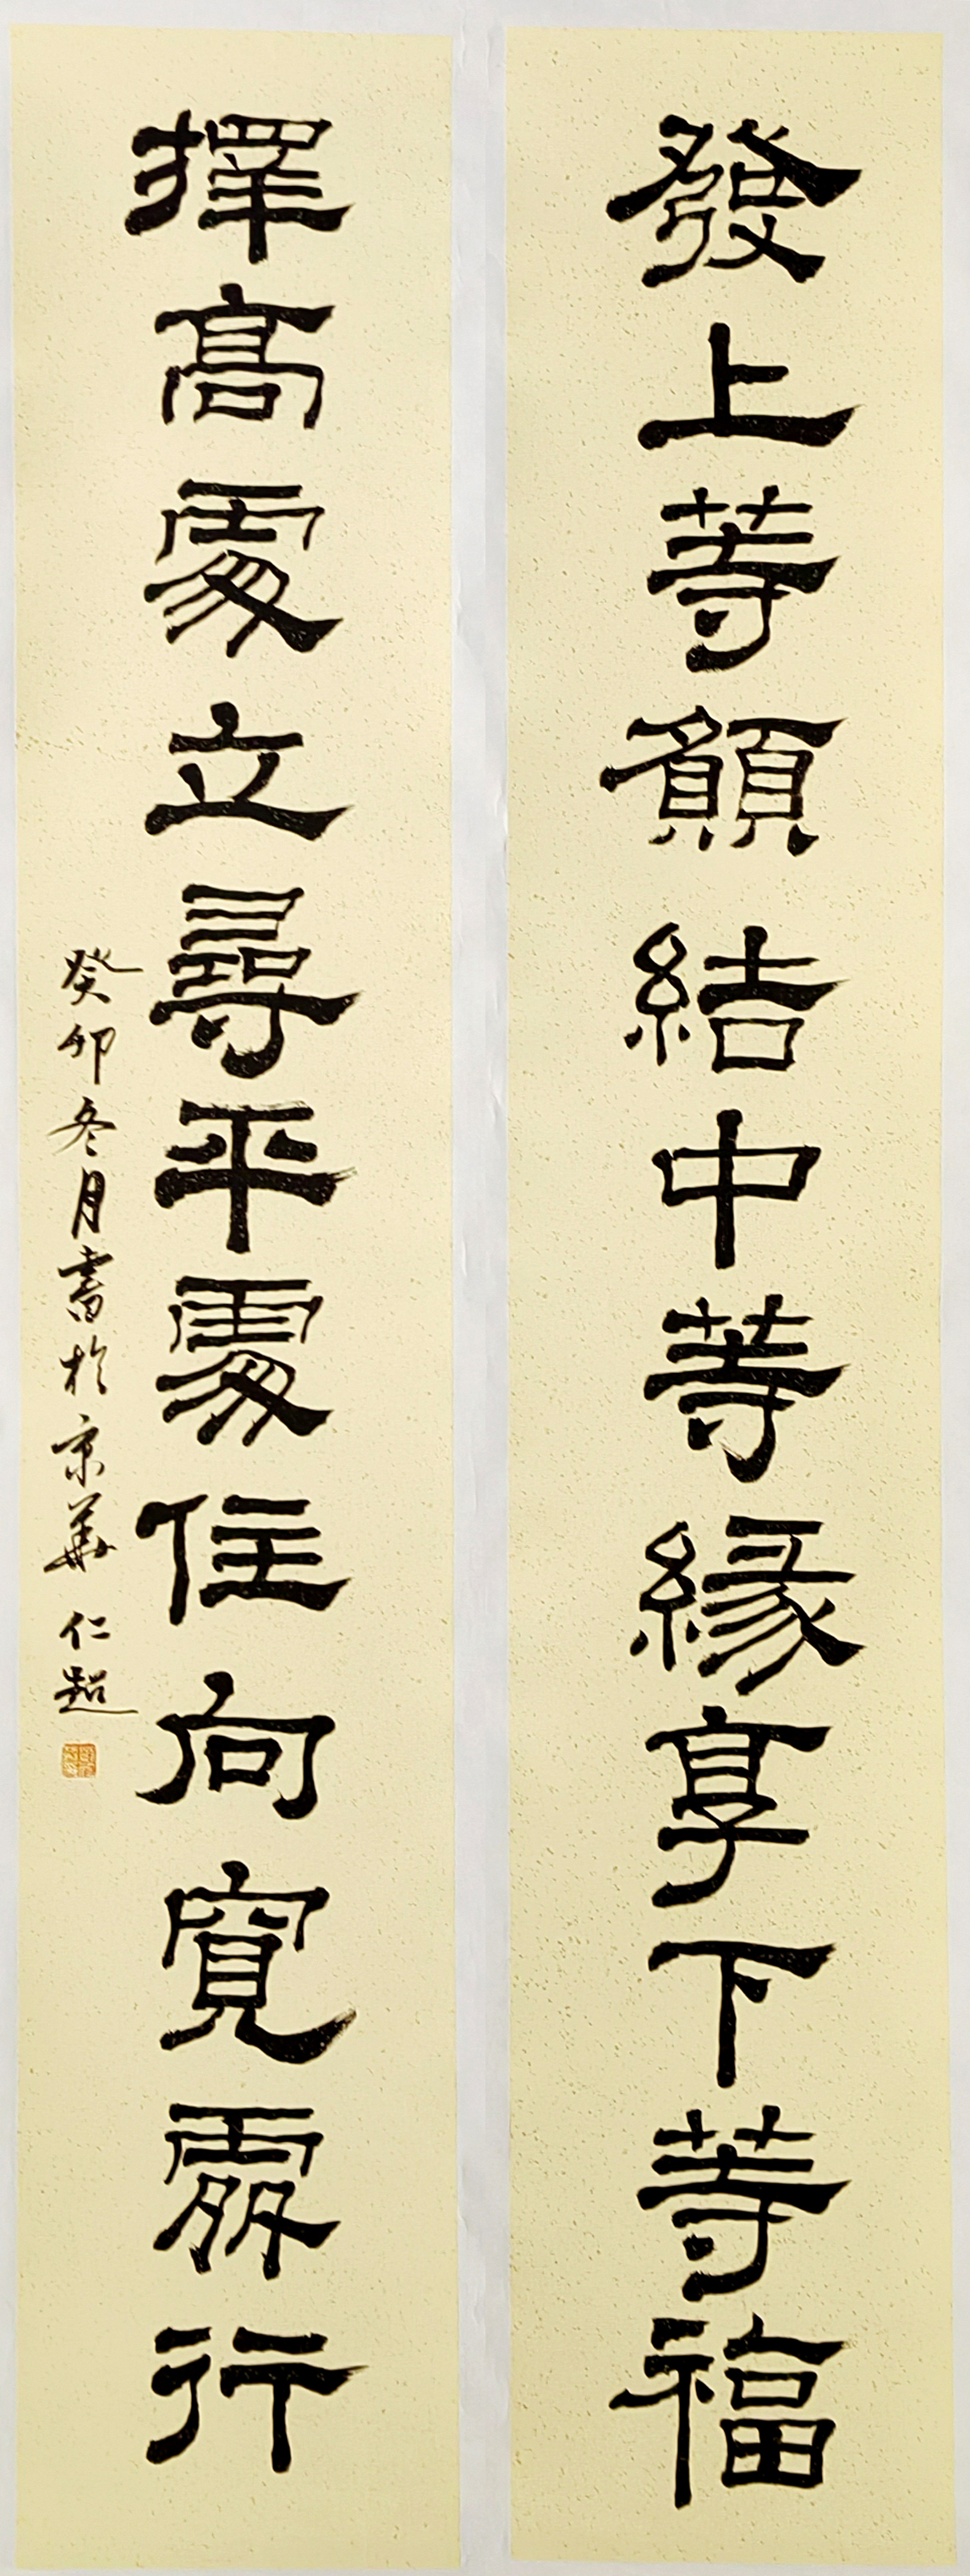 發上等願結中等緣享下等福
擇高處立尋平處住向寬處行
癸卯冬月書於京華 仁超